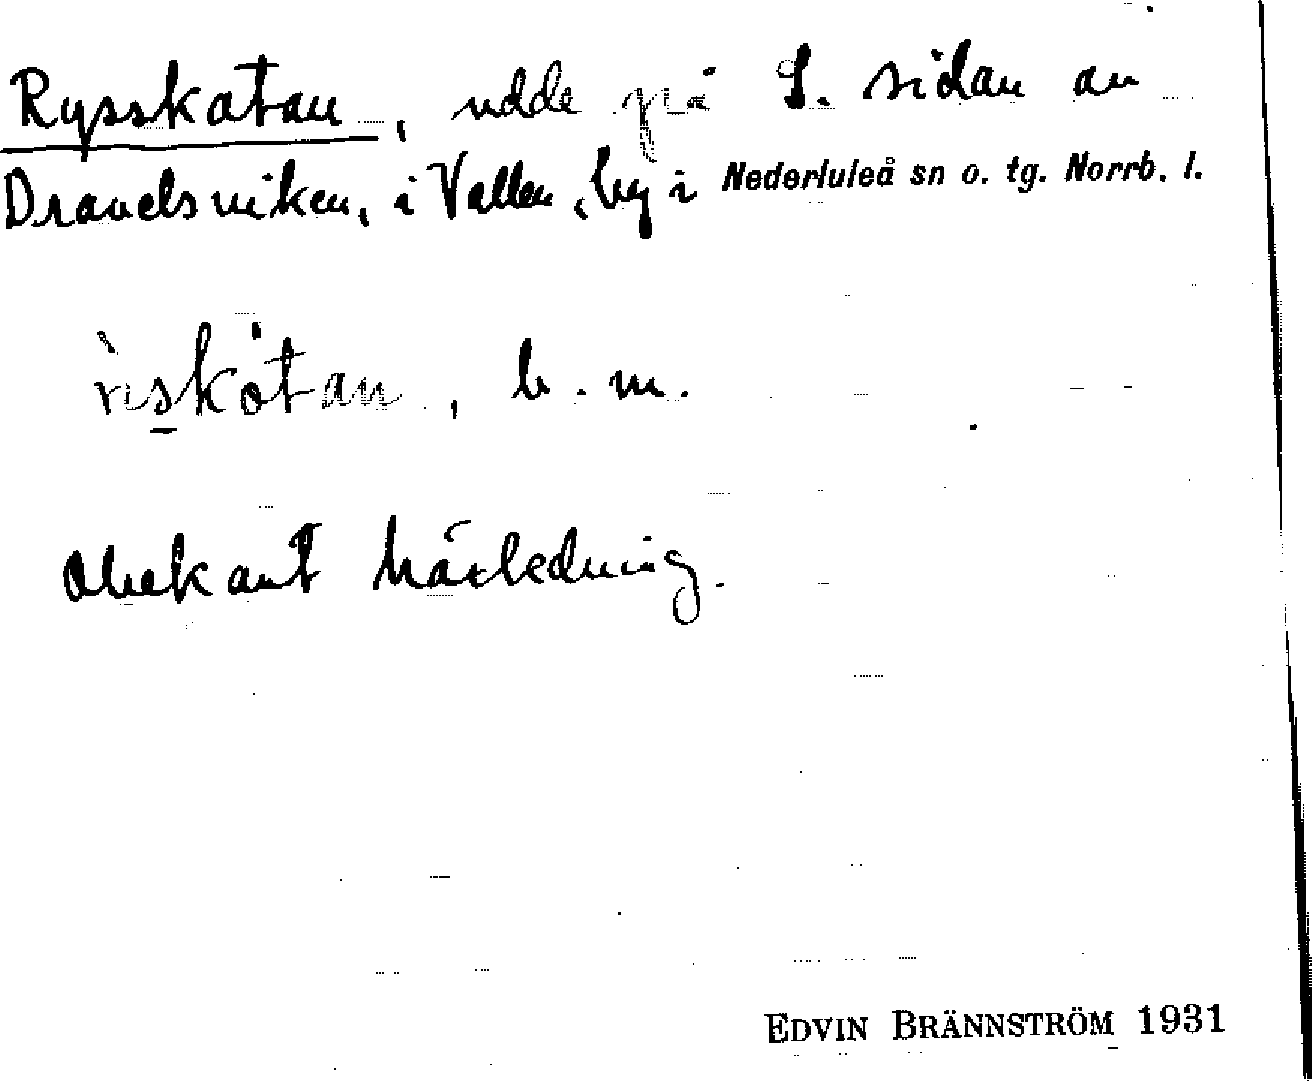 Rysskatan, udde på S. sidan av
Dravelsviken, i Vallen, by i Nederluleå sn o. tg. Norrb. l.
rìs̱kȧ́tan, b. m.
Obekant härledning.
EDVIN BRÄNNSTRÖM 1931